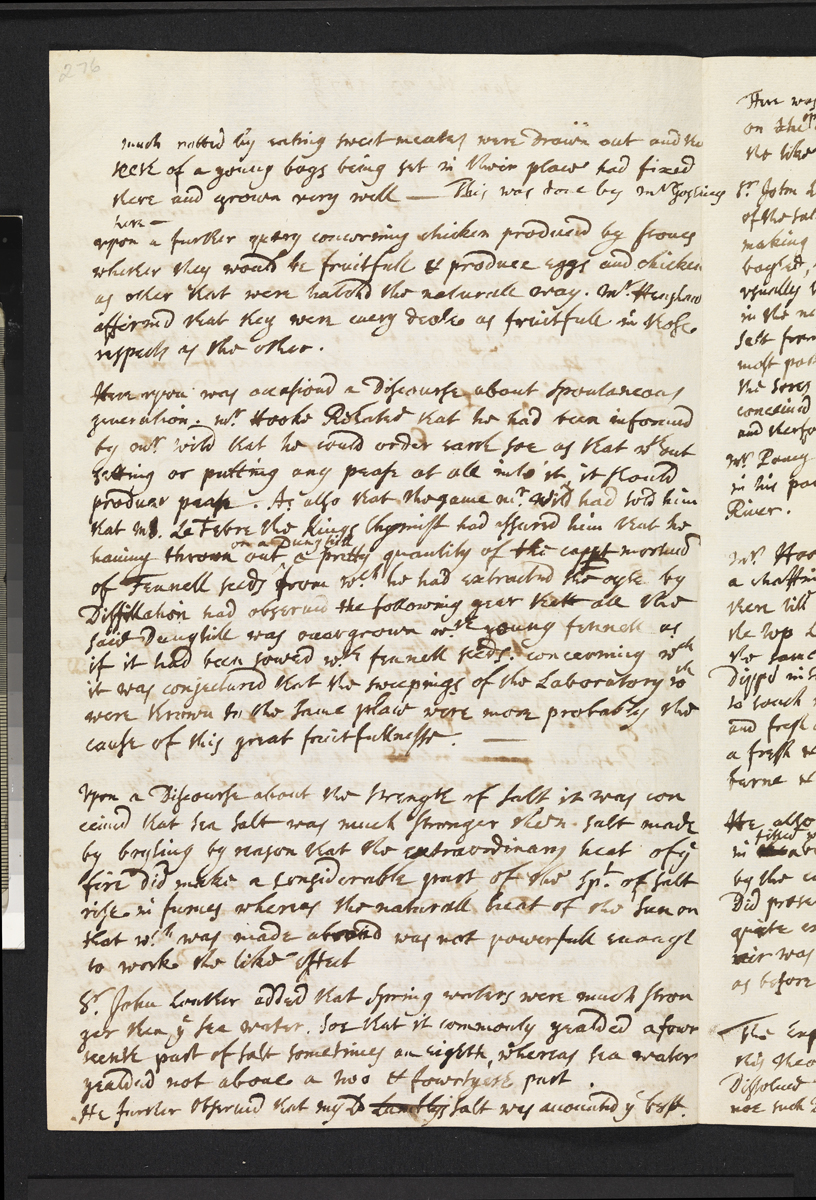 276
much rotted by eating sweet meates were drawn out and the
teeth of a young dogs being set in their place had fixed
there and grown very well — This was done by mr Hoskins
here —
upon a further query concerning chicken produced by stoves
whether they would be fruitfull & produce eggs and chicken
as other that were hatchd the naturall way. mr. Henshaw
affirmd that they were every deale as fruitfull in those
respects as the other.
Here upon was occasiond a Discourse about spontaneous
generation. mr. Hooke Related that he had been informed
by mr. wild that he could order earth soe as that wthout
setting or putting any pease at all into it, it should
produce pease. As also that the same mr. wild had told him
that mr. Le Febre the Kings Chymist had assured him that he
having thrown out on a Dunghill a pretty quantity of the caput mortuum
of Fennell seeds from wch he had extracted the oyle by
Distillation had observed the following year that all the
said Dunghill was overgrown wth young fennell as
if it had been sowed wth fennell seeds. concerning wch
it was conjectured that the sweepings of the Laboratory wch
were thrown to the same place were more probably the
cause of this great fruitfullnesse. —
Upon a Discourse about the strength of salt it was con
ceiud that sea salt was much stronger then salt made
by boyling by reason that the extraordinary heat of ye
fire did make a considerable part of the spt. of salt
rise in fumes whereas the naturall heat of the sun on
that wch was made abroad was not powerfull enough
to work the like effect
Sr. John Lowther added that spring waters were much stron
ger then ye sea water. soe that it commonly yealded a four
teenth part of salt sometimes an eighth, whereas sea water
yealded not above a two & fowrtyeth part.
He further observed that my Ld salt was accounted ye best.
Here was
on the
the like
Sr. John L
of the sal
making
boyled,
usually
in the
salt from
most part
the
conceiued
and therfo
mr. Pacey
in his
River.
mr. Hoo
a chaffin
then till
the top
the same
Dippd in
to touch
and fresh
a fresh
burne
He also
in
by the
Did
quite
air was
as before
The Exp
this theo
Dissolved
not such